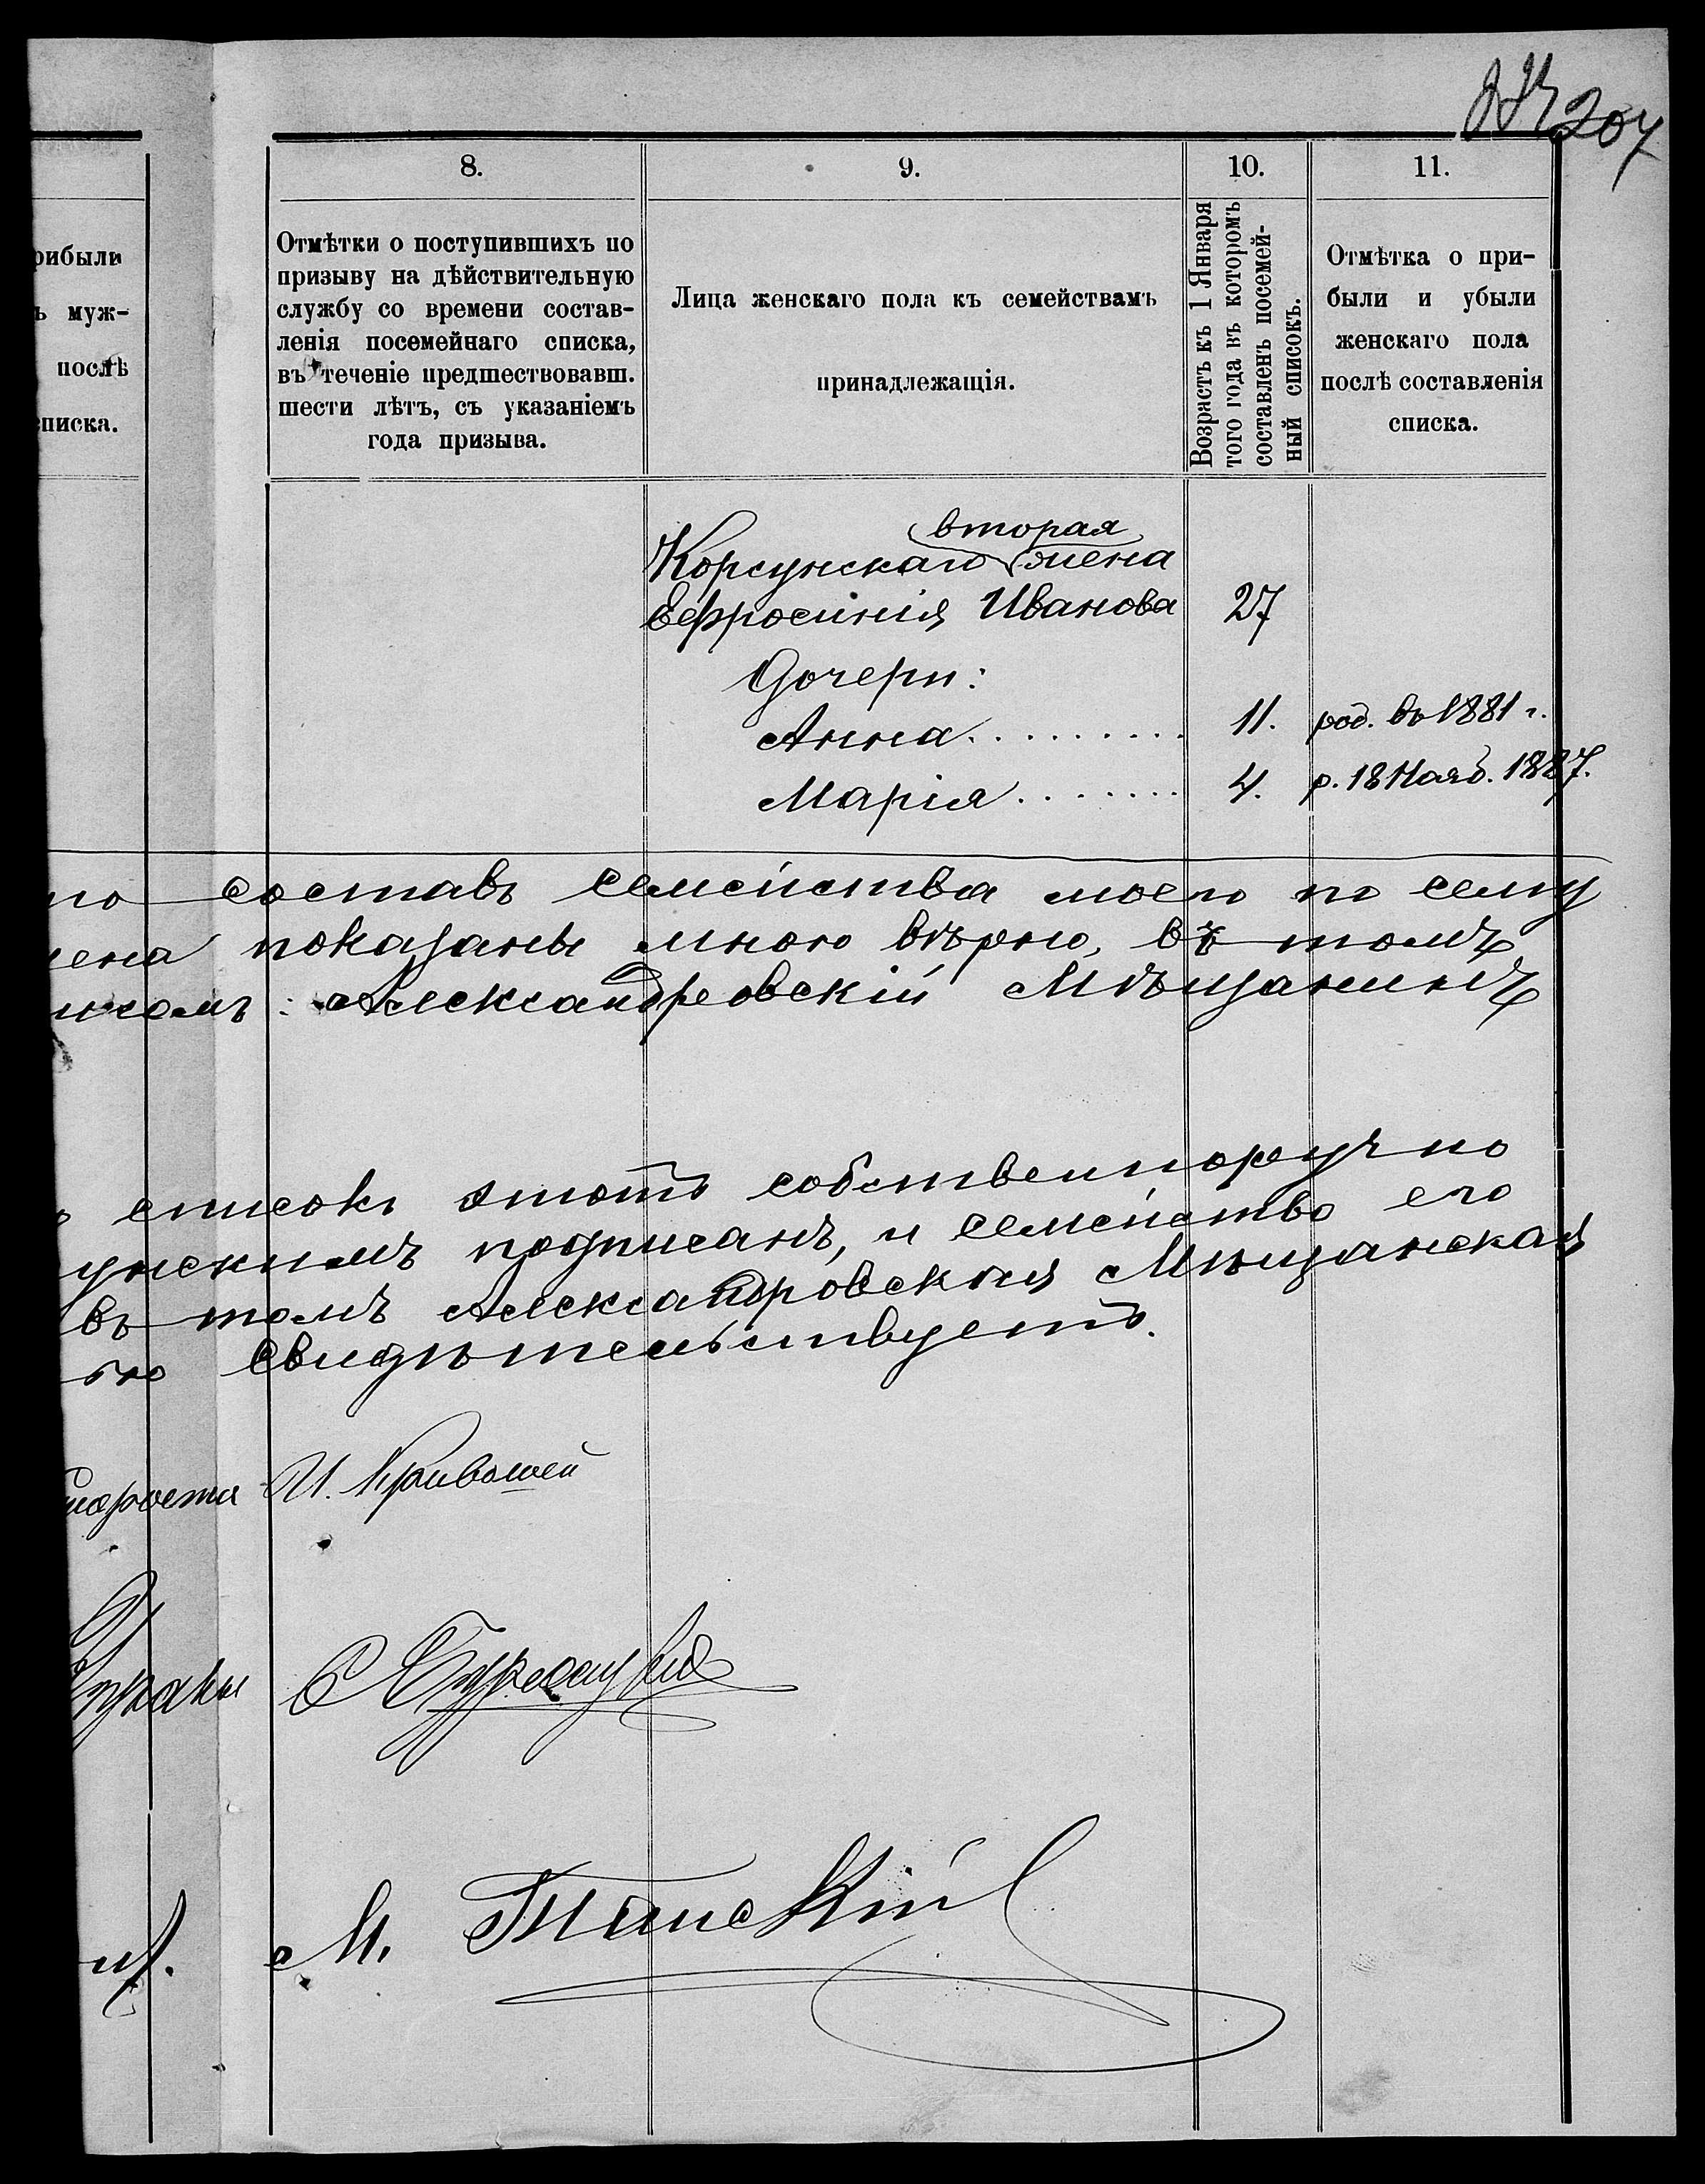 207
8.
9.
10.
11.
рибыли
ъ муж-
послѣ
списка.
Отмѣтки о поступившихъ по
призыву на дѣйствительную
службу со времени состав-
ленія посемейнаго списка,
въ теченіе предшествовавш.
шести лѣтъ, съ указаніемъ
года призыва.
Лица женскаго пола къ семействамъ
принадлежащія.
Возрастъ къ 1 Января
того года въ которомъ
составленъ посемей-
ный списокъ.
Отмѣтка о при-
были и убыли
женскаго пола
послѣ составленія
списка.
вторая
Корсунскаго жена
Ефросинія Иванова 27
Дочери:
Анна . . . . . . . . . 11. род. въ 1881 г.
Марія . . . . . . . 4. р. 18 Нояб. 1887.
то составъ семейства моего по сему
мена показаны мною вѣрно, въ томъ
: Александровскій Мѣщанинъ
списокъ этотъ собственноручно
унскимъ подписанъ, и семейство его
въ томъ Александровская Мѣщанская
свидѣтельствуетъ.
тароста И. Кривошей
Управы С
М. Танскій